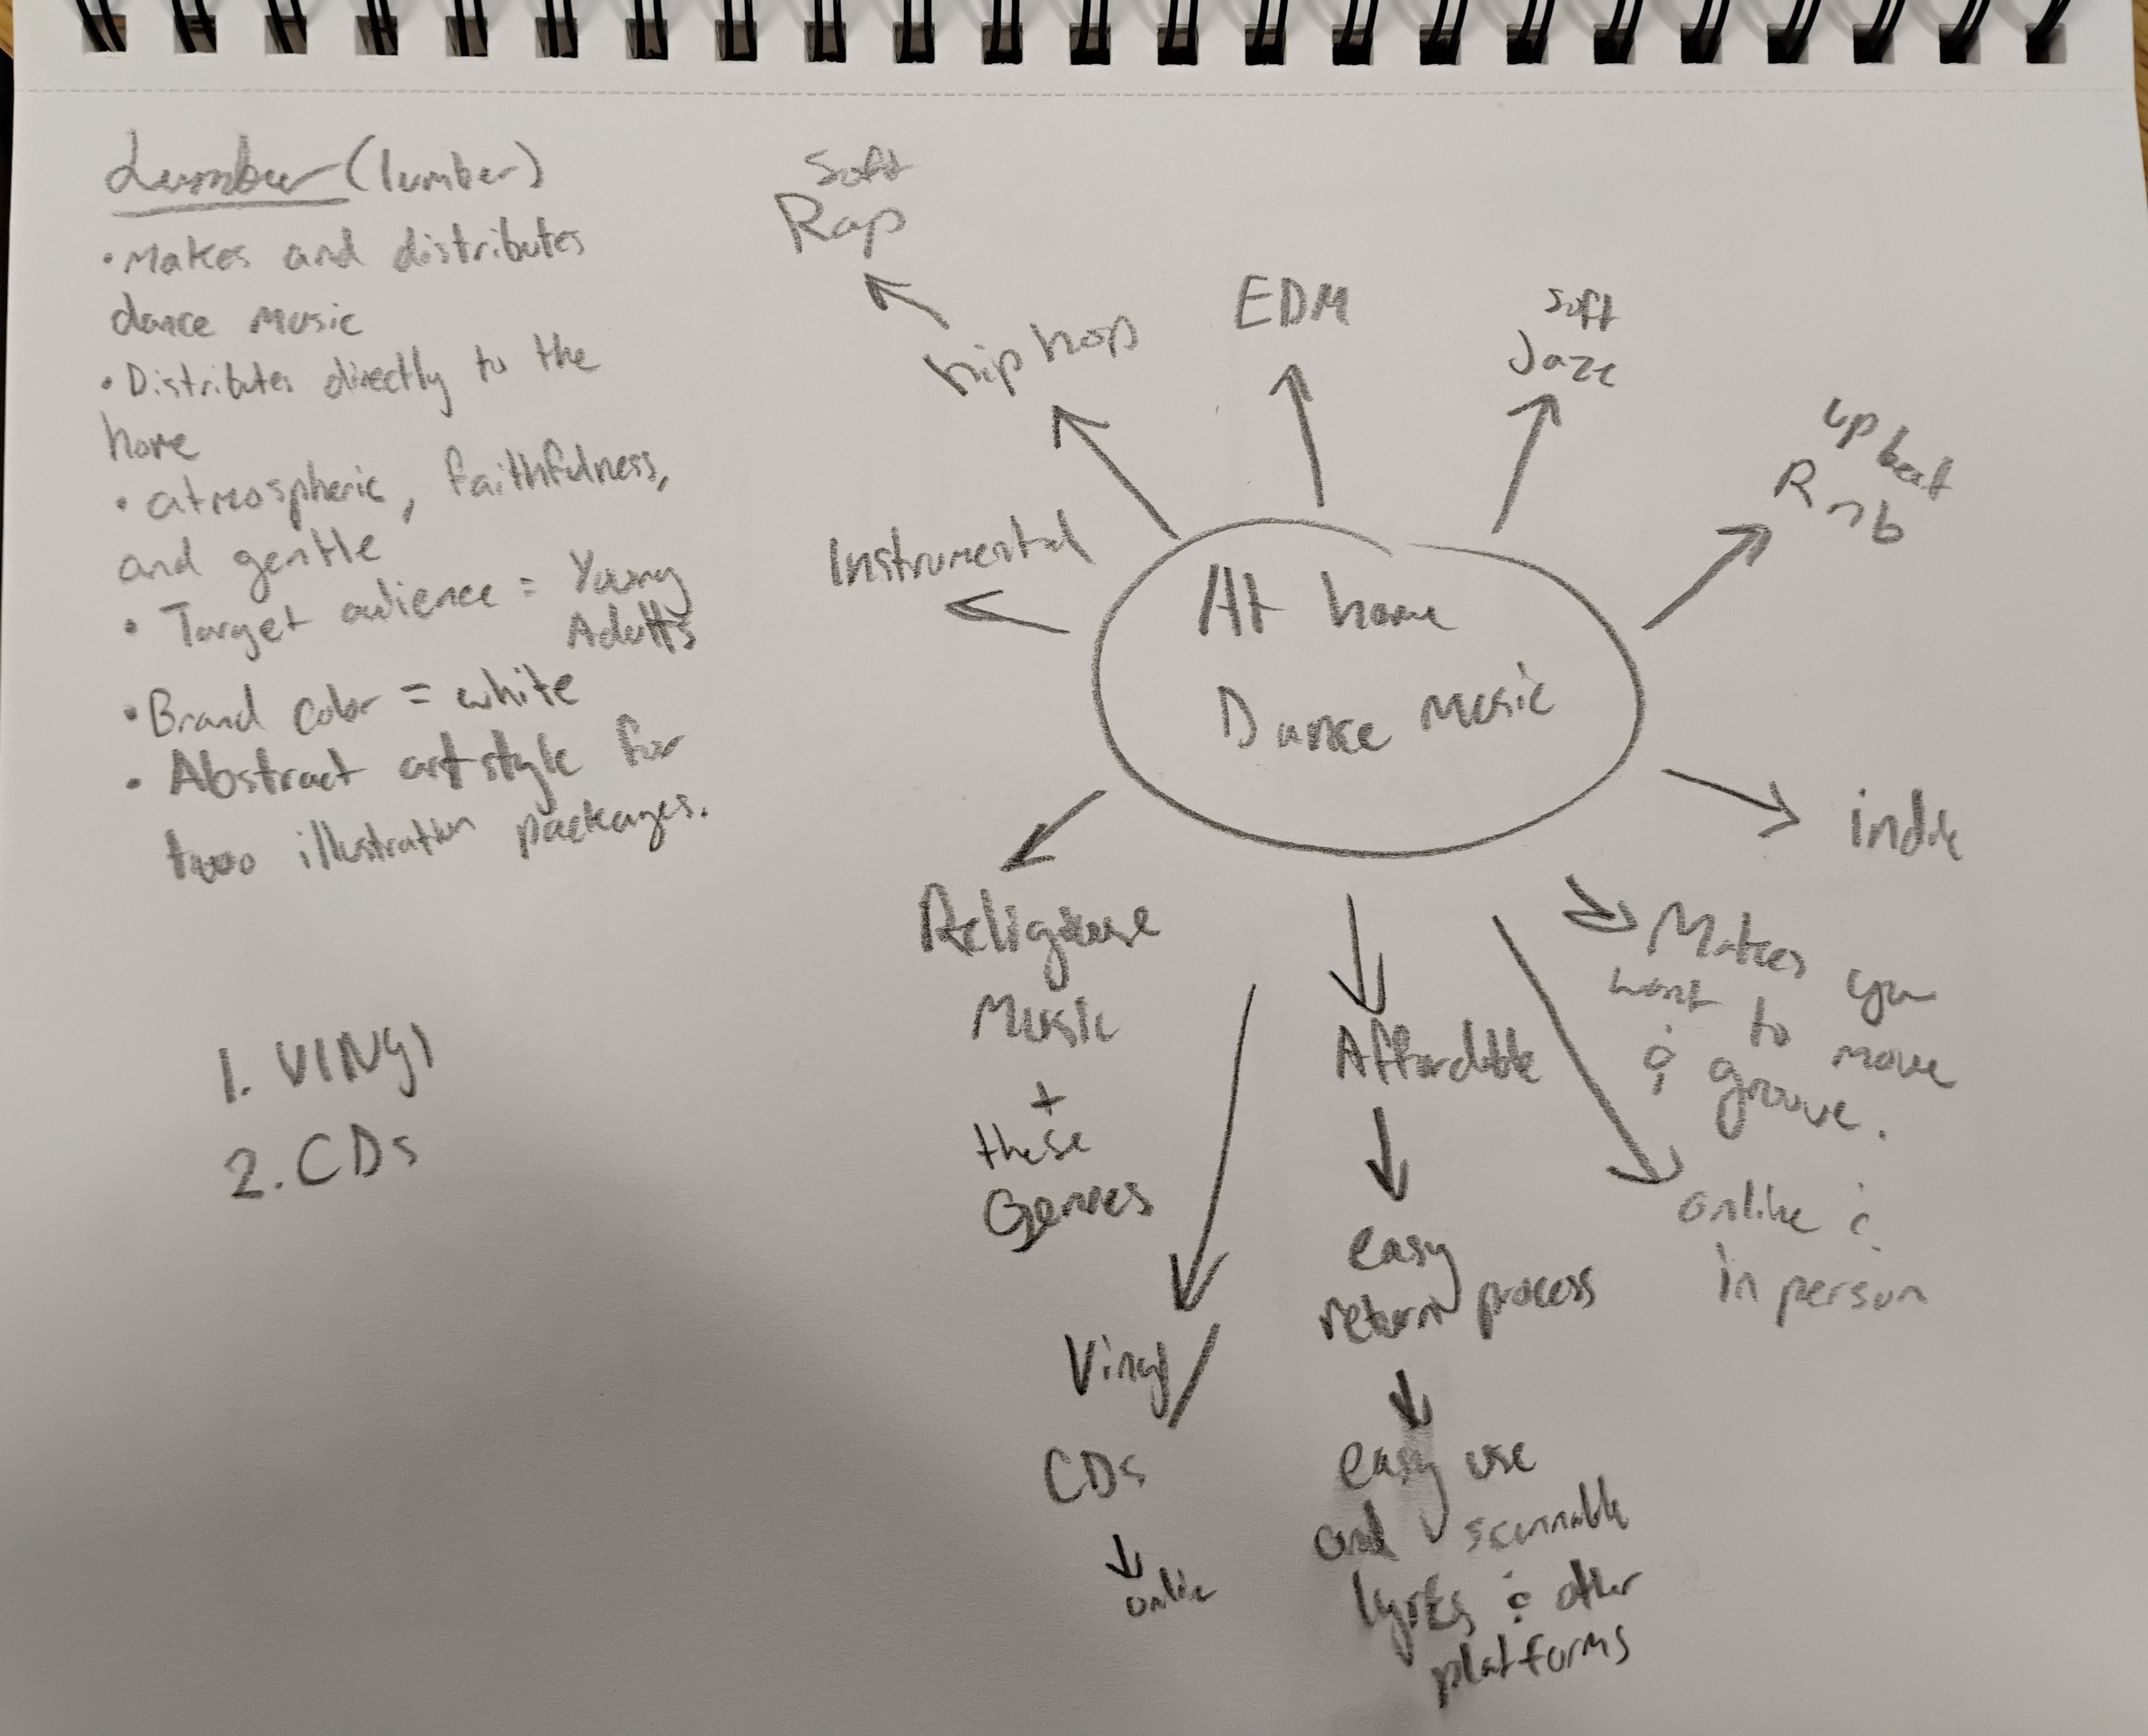 Lumber (lumber)
• Makes and distributes
dance music
• Distributes directly to the
home
• atmospheric, faithfulness,
and gentle
• Target audience = Young
Adults
• Brand color = white
• Abstract artstyle for
two illustration packages.
1. VINYl
2. CDs
Soft
Rap
hip hop
EDM
soft
Jazz
up beat
Rnb
Instrumental
At home
Dance music
indie
Religiouse
Music
+
these
Genres
Makes you
want to move
& groove.
Affordable
easy
return process
easy use
and scannable
lyrics & other
platforms
online &
in person
Vinyl
CDs
online